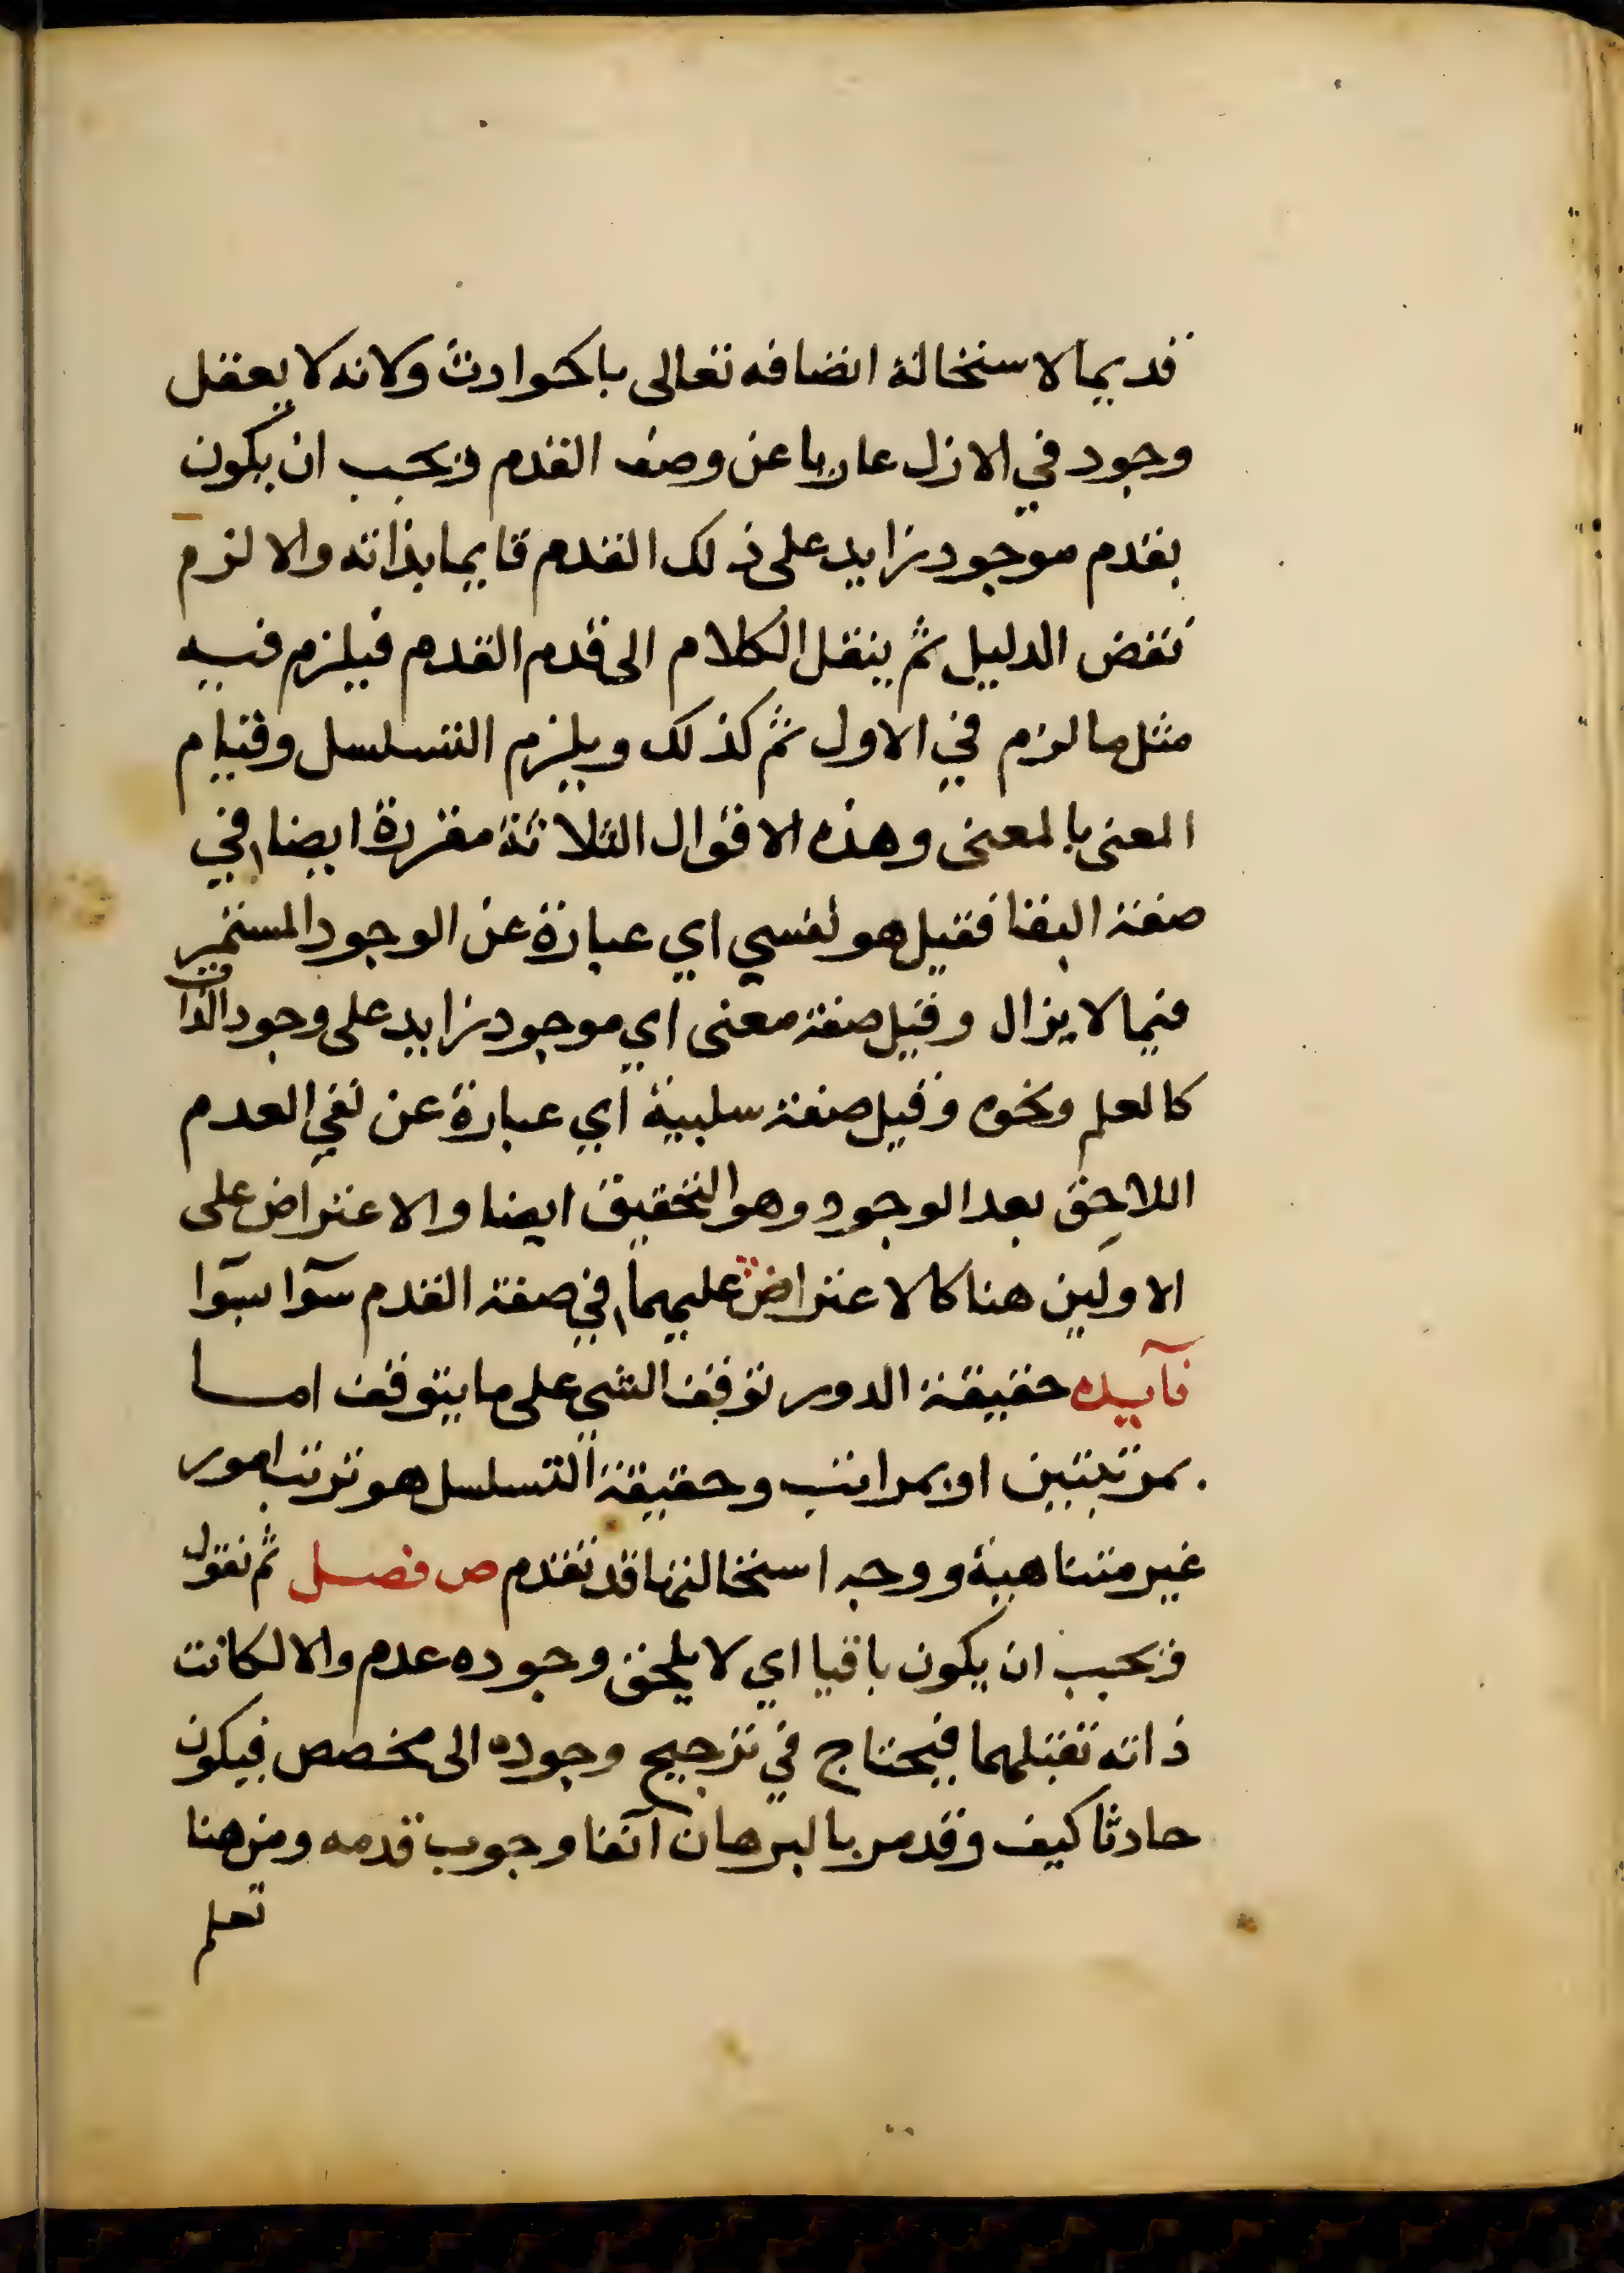 قديما لاستحالة اتصافه تعالى بالحوادث ولانه لا يعقل
وجود في الازل عاريا عن وصف القدم ويجب ان يكون
بقدم موجود زايد على ذلك القدم قايما بذاته والا لزم
نقض الدليل ثم ينقل الكلام الى قدم القدم فيلزم فيه
مثل ما لزم في الاول ثم كذلك ويلزم التسلسل وقيام
المعنى بالمعنى وهذه الاقوال الثلاثة مقررة ايضا في
صفة البقا فقيل هو نفسي اي عبارة عن الوجود المستمر
فيما لا يزال وقيل صفة معنى اي موجود زايد على وجود الذات
كالعلم ونحوه وقيل صفة سلبية اي عبارة عن نفي العدم
اللاحق بعد الوجود وهو التحقيق ايضا والاعتراض على
الاولين هنا كالاعتراض عليهما في صفة القدم سوآ سوآ
فآيده حقيقة الدور توقف الشي على ما يتوقف اما
بمرتبتين او بمراتب وحقيقة التسلسل هو ترتب امور
غير متناهية ووجه استحالتها قد تقدم ص فصل ثم نقول
ويجب ان يكون باقيا اي لا يلحق وجوده عدم والا لكانت
ذاته تقبلهما فيحتاج في ترجيح وجوده الى مخصص فيكون
حادثا كيف وقد مر بالبرهان آنفا وجوب قدمه ومن هنا
تعلم